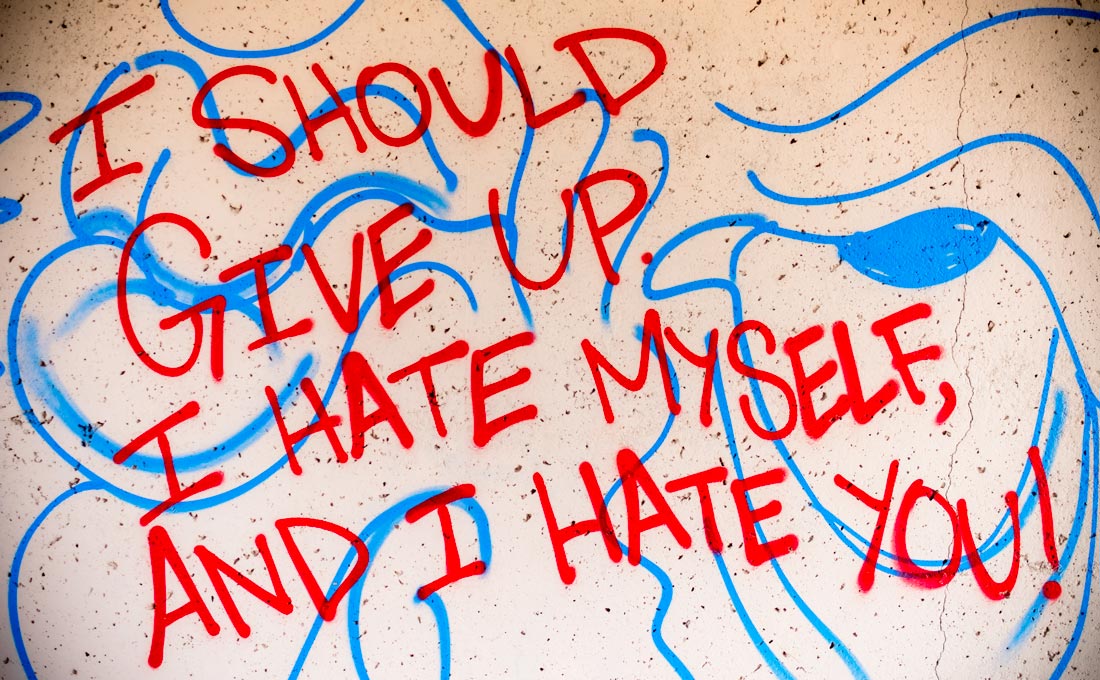 I SHOULD
GIVE UP.
I HATE MYSELF,
AND I HATE YOU!